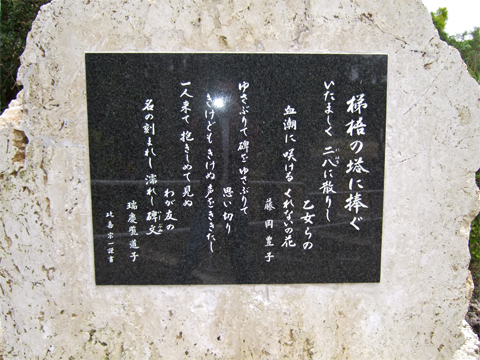 梯梧の塔に捧ぐ
いたましく 二八に散りし
乙女らの
血潮に咲ける くれないの花
藤岡豊子
ゆさぶりて碑をゆさぶりて
思い切り
きけどもきけぬ 声をききたし
一人来て 抱きしめて見ぬ
わが友の
名の刻まれし 濡れし碑文
いしぶみ
瑞慶覧道子
比嘉宗一謹書